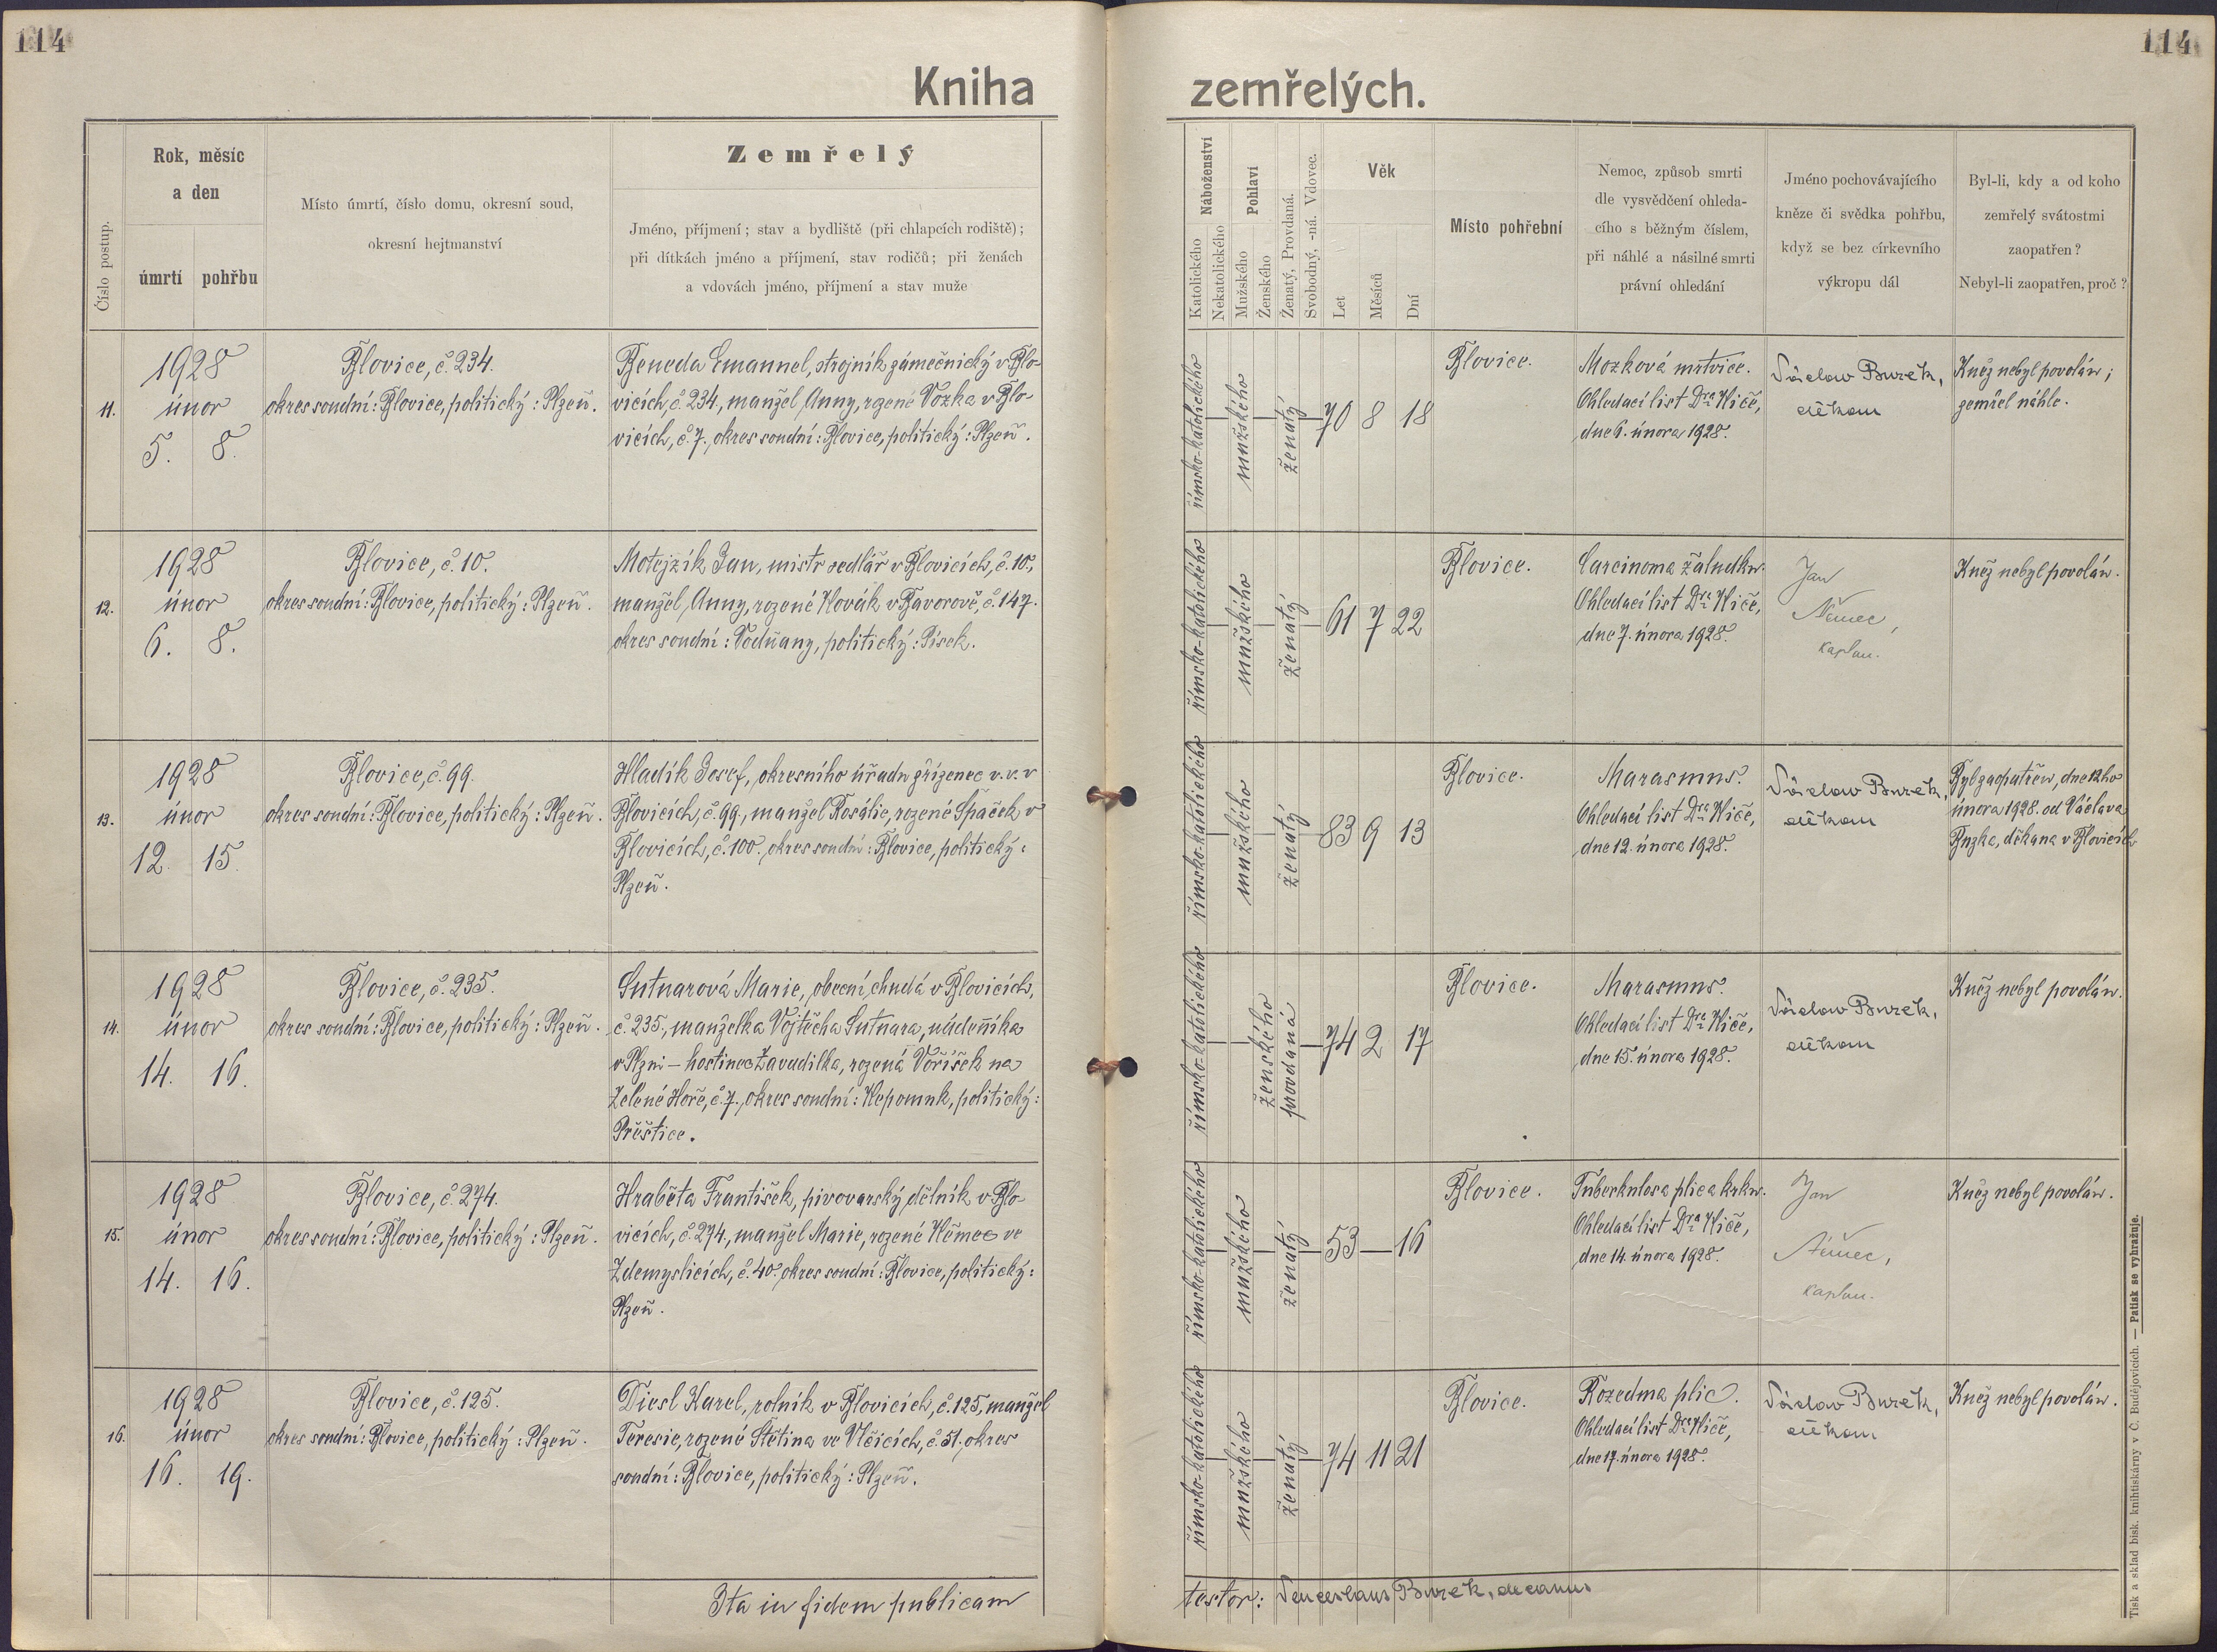 114
114
Kniha zemřelých.
Číslo postup.
Rok, měsíc
a den
úmrtí pohřbu
Místo úmrtí, číslo domu, okresní soud,
okresní hejtmanství
Zemřelý
Jméno, příjmení; stav a bydliště (při chlapcích rodiště);
při dítkách jméno a příjmení, stav rodičů; při ženách
a vdovách jméno, příjmení a stav muže
Náboženství
Katolického
Nekatolického
Pohlaví
Mužského
Ženského
Ženatý, Provdaná.
Svobodný, -ná. Vdovec.
Věk
Let
Měsíců
Dní
Místo pohřební
Nemoc, způsob smrti
dle vysvědčení ohleda-
cího s běžným číslem,
při náhlé a násilné smrti
právní ohledání
Jméno pochovávajícího
kněze či svědka pohřbu,
když se bez církevního
výkropu dál
Byl-li, kdy a od koho
zemřelý svátostmi
zaopatřen?
Nebyl-li zaopatřen, proč?
11.
1928
únor
5. 8.
Blovice, č. 234.
okres soudní: Blovice, politický: Plzeň.
Beneda Emannel, strojník zámečnický v Blo-
vicích, č. 234, manžel Anny, rozené Vozka v Blo-
vicích, č. 7., okres soudní: Blovice, politický: Plzeň.
římsko-katolického
mužského
ženatý
70 8 18
Blovice.
Mozková mrtvice.
Ohledací list Dra Kiče,
dne 6. února 1928.
Václav Buzek,
děkan
Kněz nebyl povolán;
zemřel náhle.
12.
1928
únor
6. 8.
Blovice, č. 10.
okres soudní: Blovice, politický: Plzeň.
Motejzík Jan, mistr sedlář v Blovicích, č. 10.,
manžel Anny, rozené Novák v Bavorově, č. 147.
okres soudní: Vodňany, politický: Písek.
římsko-katolického
mužského
ženatý
61 7 22
Blovice.
Carcinoma žaludku.
Ohledací list Dra Kiče,
dne 7. února 1928.
Jan
Němec,
kaplan.
Kněz nebyl povolán.
13.
1928
únor
12. 15.
Blovice, č. 99.
okres soudní: Blovice, politický: Plzeň.
Hladík Josef, okresního úřadu zřízenec v. v. v
Blovicích, č. 99., manžel Rosálie, rozené Špaček v
Blovicích, č. 100., okres soudní: Blovice, politický:
Plzeň.
římsko-katolického
mužského
ženatý
83 9 13
Blovice.
Marasmus.
Ohledací list Dra Kiče,
dne 12. února 1928.
Václav Buzek,
děkan
Byl zaopatřen, dne 12ho
února 1928. od Václava
Buzka, děkana v Blovicích
14.
1928
únor
14. 16.
Blovice, č. 235.
okres soudní: Blovice, politický: Plzeň.
Sutnarová Marie, obecní chudá v Blovicích,
č. 235., manželka Vojtěcha Sutnara, nádeníka
v Plzni – hostinec Zavadilka, rozená Voříšek na
Zelené Hoře, č. 7., okres soudní: Nepomuk, politický:
Přeštice.
římsko-katolického
ženského
provdaná
74 2 17
Blovice.
Marasmus.
Ohledací list Dra Kiče,
dne 15. února 1928.
Václav Buzek,
děkan
Kněz nebyl povolán.
15.
1928
únor
14. 16.
Blovice, č. 274.
okres soudní: Blovice, politický: Plzeň.
Hraběta František, pivovarský dělník v Blo-
vicích, č. 274., manžel Marie, rozené Němec ve
Zdemyslicích, č. 40., okres soudní: Blovice, politický:
Plzeň.
římsko-katolického
mužského
ženatý
53 — 16
Blovice.
Tuberkulosa plic a krku.
Ohledací list Dra Kiče,
dne 14. února 1928.
Jan
Němec,
kaplan.
Kněz nebyl povolán.
16.
1928
únor
16. 19.
Blovice, č. 125.
okres soudní: Blovice, politický: Plzeň.
Diesl Karel, rolník v Blovicích, č. 125, manžel
Teresie, rozené Štětina ve Vlčicích, č. 51., okres
soudní: Blovice, politický: Plzeň.
římsko-katolického
mužského
ženatý
74 11 21
Blovice.
Rozedma plic.
Ohledací list Dra Kiče,
dne 17. února 1928.
Václav Buzek,
děkan
Kněz nebyl povolán.
Ita in fidem publicam
testor: Venceslaus Buzek, decanus
Tisk a sklad bisk. knihtiskárny v Č. Budějovicích. — Patisk se vyhražuje.